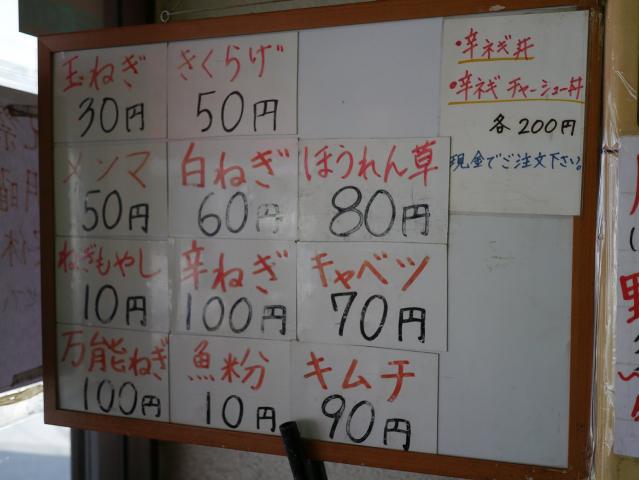 玉ねぎ
30円
きくらげ
50円
メンマ
50円
白ねぎ
60円
ほうれん草
80円
ねぎもやし
10円
辛ねぎ
100円
キャベツ
70円
万能ねぎ
100円
魚粉
10円
キムチ
90円
・辛ネギ丼
・辛ネギチャーシュー丼
各200円
現金でご注文下さい。